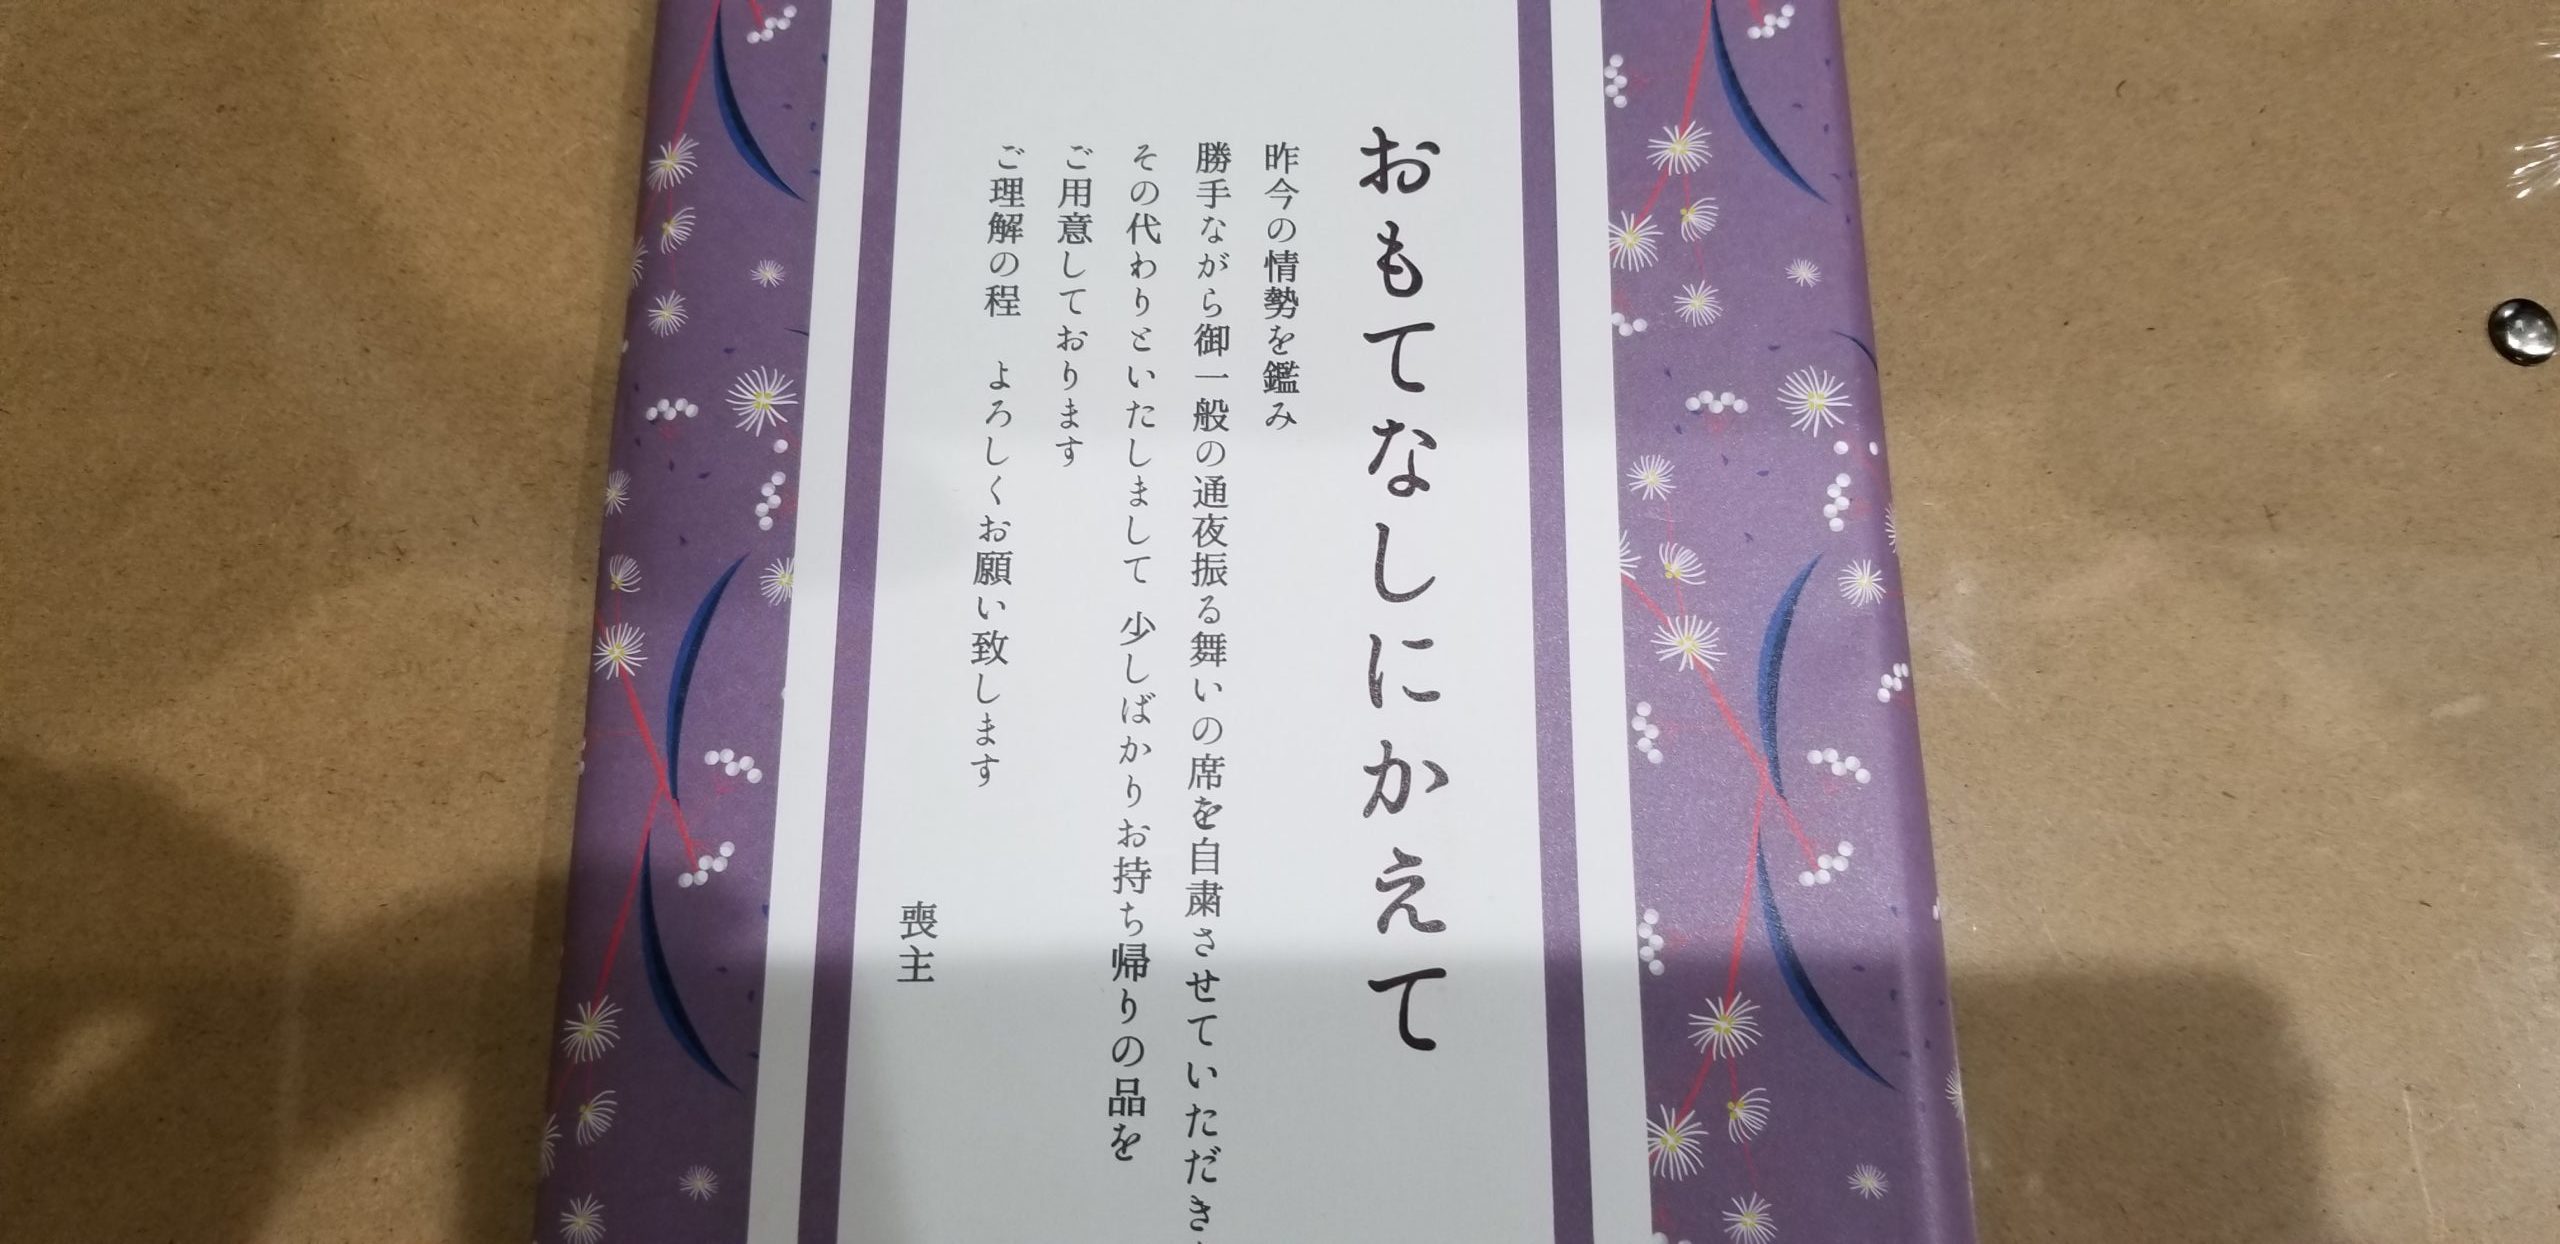 おもてなしにかえて
昨今の情勢を鑑み
勝手ながら御一般の通夜振る舞いの席を自粛させていただき
その代わりといたしまして 少しばかりお持ち帰りの品を
ご用意しております
ご理解の程　よろしくお願い致します
喪主